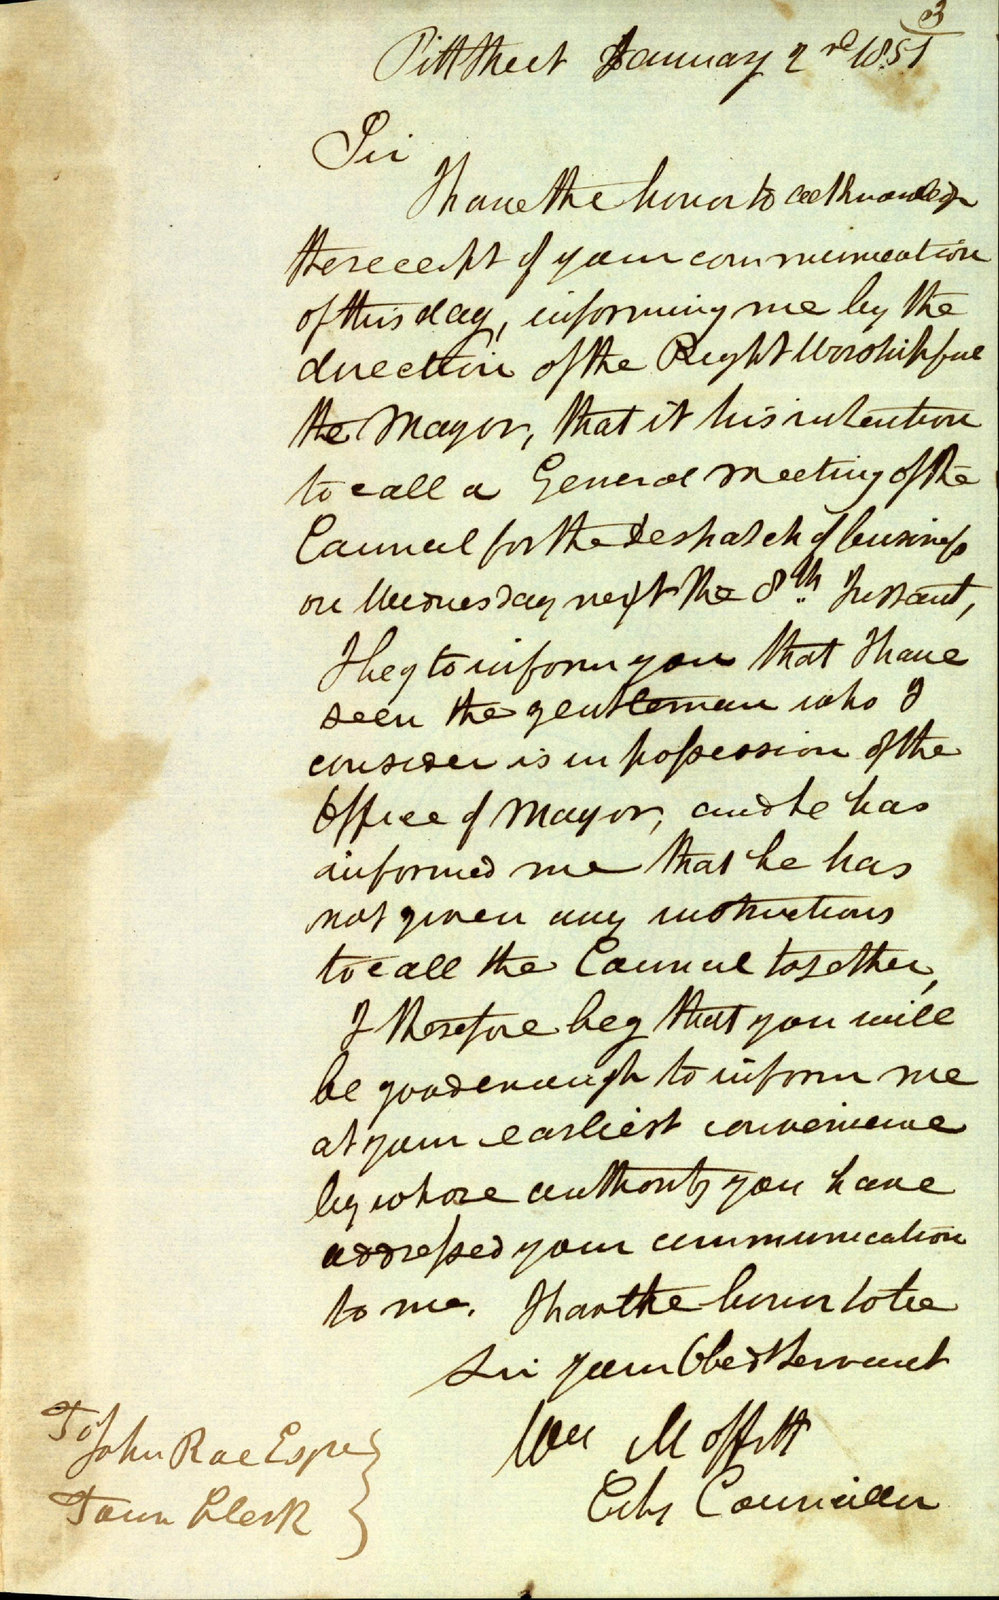 3
Pitt Street January 2nd 1851
Sir
I have the honor to acknowledge
the receipt of your communication
of this day, informing me by the
direction of the Right Worshipful
the Mayor, that it his intention
to call a General Meeting of the
Council for the despatch of business
on Wednesday next the 8th Instant,
I beg to inform you that I have
seen the gentleman who I
consider is in possession of the
Office of Mayor, and he has
informed me that he has
not given any instructions
to call the Council together,
I therefore beg that you will
be good enough to inform me
at your earliest convenience
by whose authority you have
addressed your communication
to me. I have the honor to be
Sir your Obedt Servant
Wm Moffitt
City Councillor
To
John Rae Esqre
Town Clerk